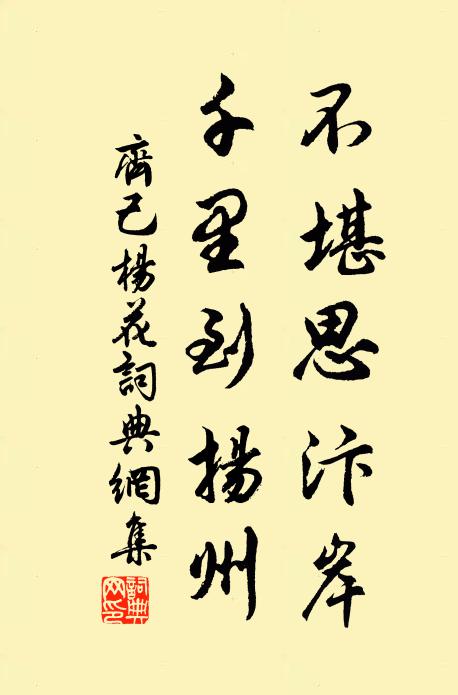 不堪思汴岸
千里到揚州
齊己楊花詞典網集
詞典网印